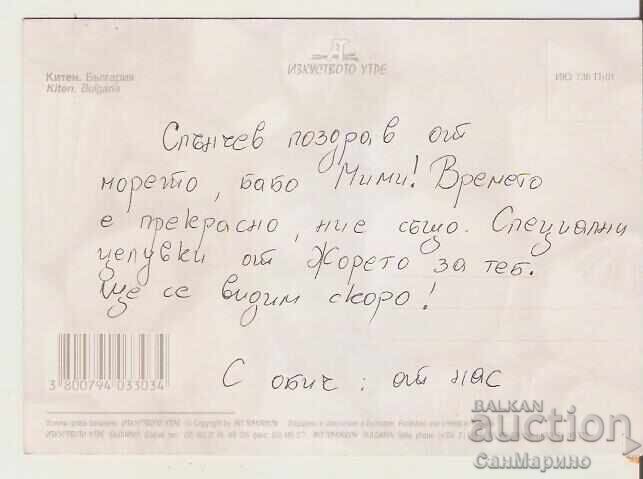 ИЗКУСТВОТО УТРЕ
Китен. България
Kiten. Bulgaria
Слънчев поздрав от
морето, бабо Мими! Времето
е прекрасно, ние също. Специални
целувки от Жорето за теб.
Ще се видим скоро!
С обич: от нас
3 800794 033034
BALKAN
auction
СанМарино